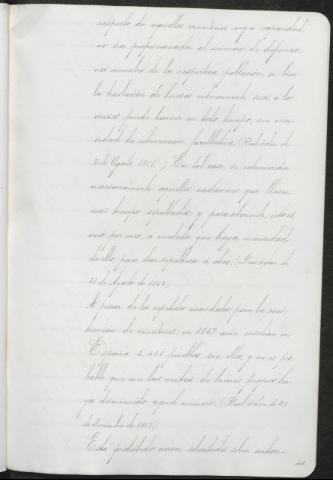 respecto de aquellos cementerios cuya capacidad
no sea proporcionada al número de defuncio-
nes anuales de la respectiva población, si bien
la traslación de huesos enteramente secos a los
osarios puede hacerse en todo tiempo, sin nece-
sidad de intervención facultativa. (Real orden de
Agosto En tal caso, se exhumarán
necesariamente aquellos cadáveres que lleven
mas tiempo sepultados; y parcialmente, esto es
uno por uno, á medida que haya necesidad
de ello, para dar sepultura á otros. (Real orden de
de Agosto de
A pesar de los repetidos mandados para la cons-
trucción de cementerios, en 1857 aún existían en
España 2,655 pueblos sin ellos, y no es pro-
bable que con las ventas de bienes propios ha-
ya disminuido aquel número. (Real orden de
de Noviembre de 1857.)
Está prohibido cerrar sin autori-